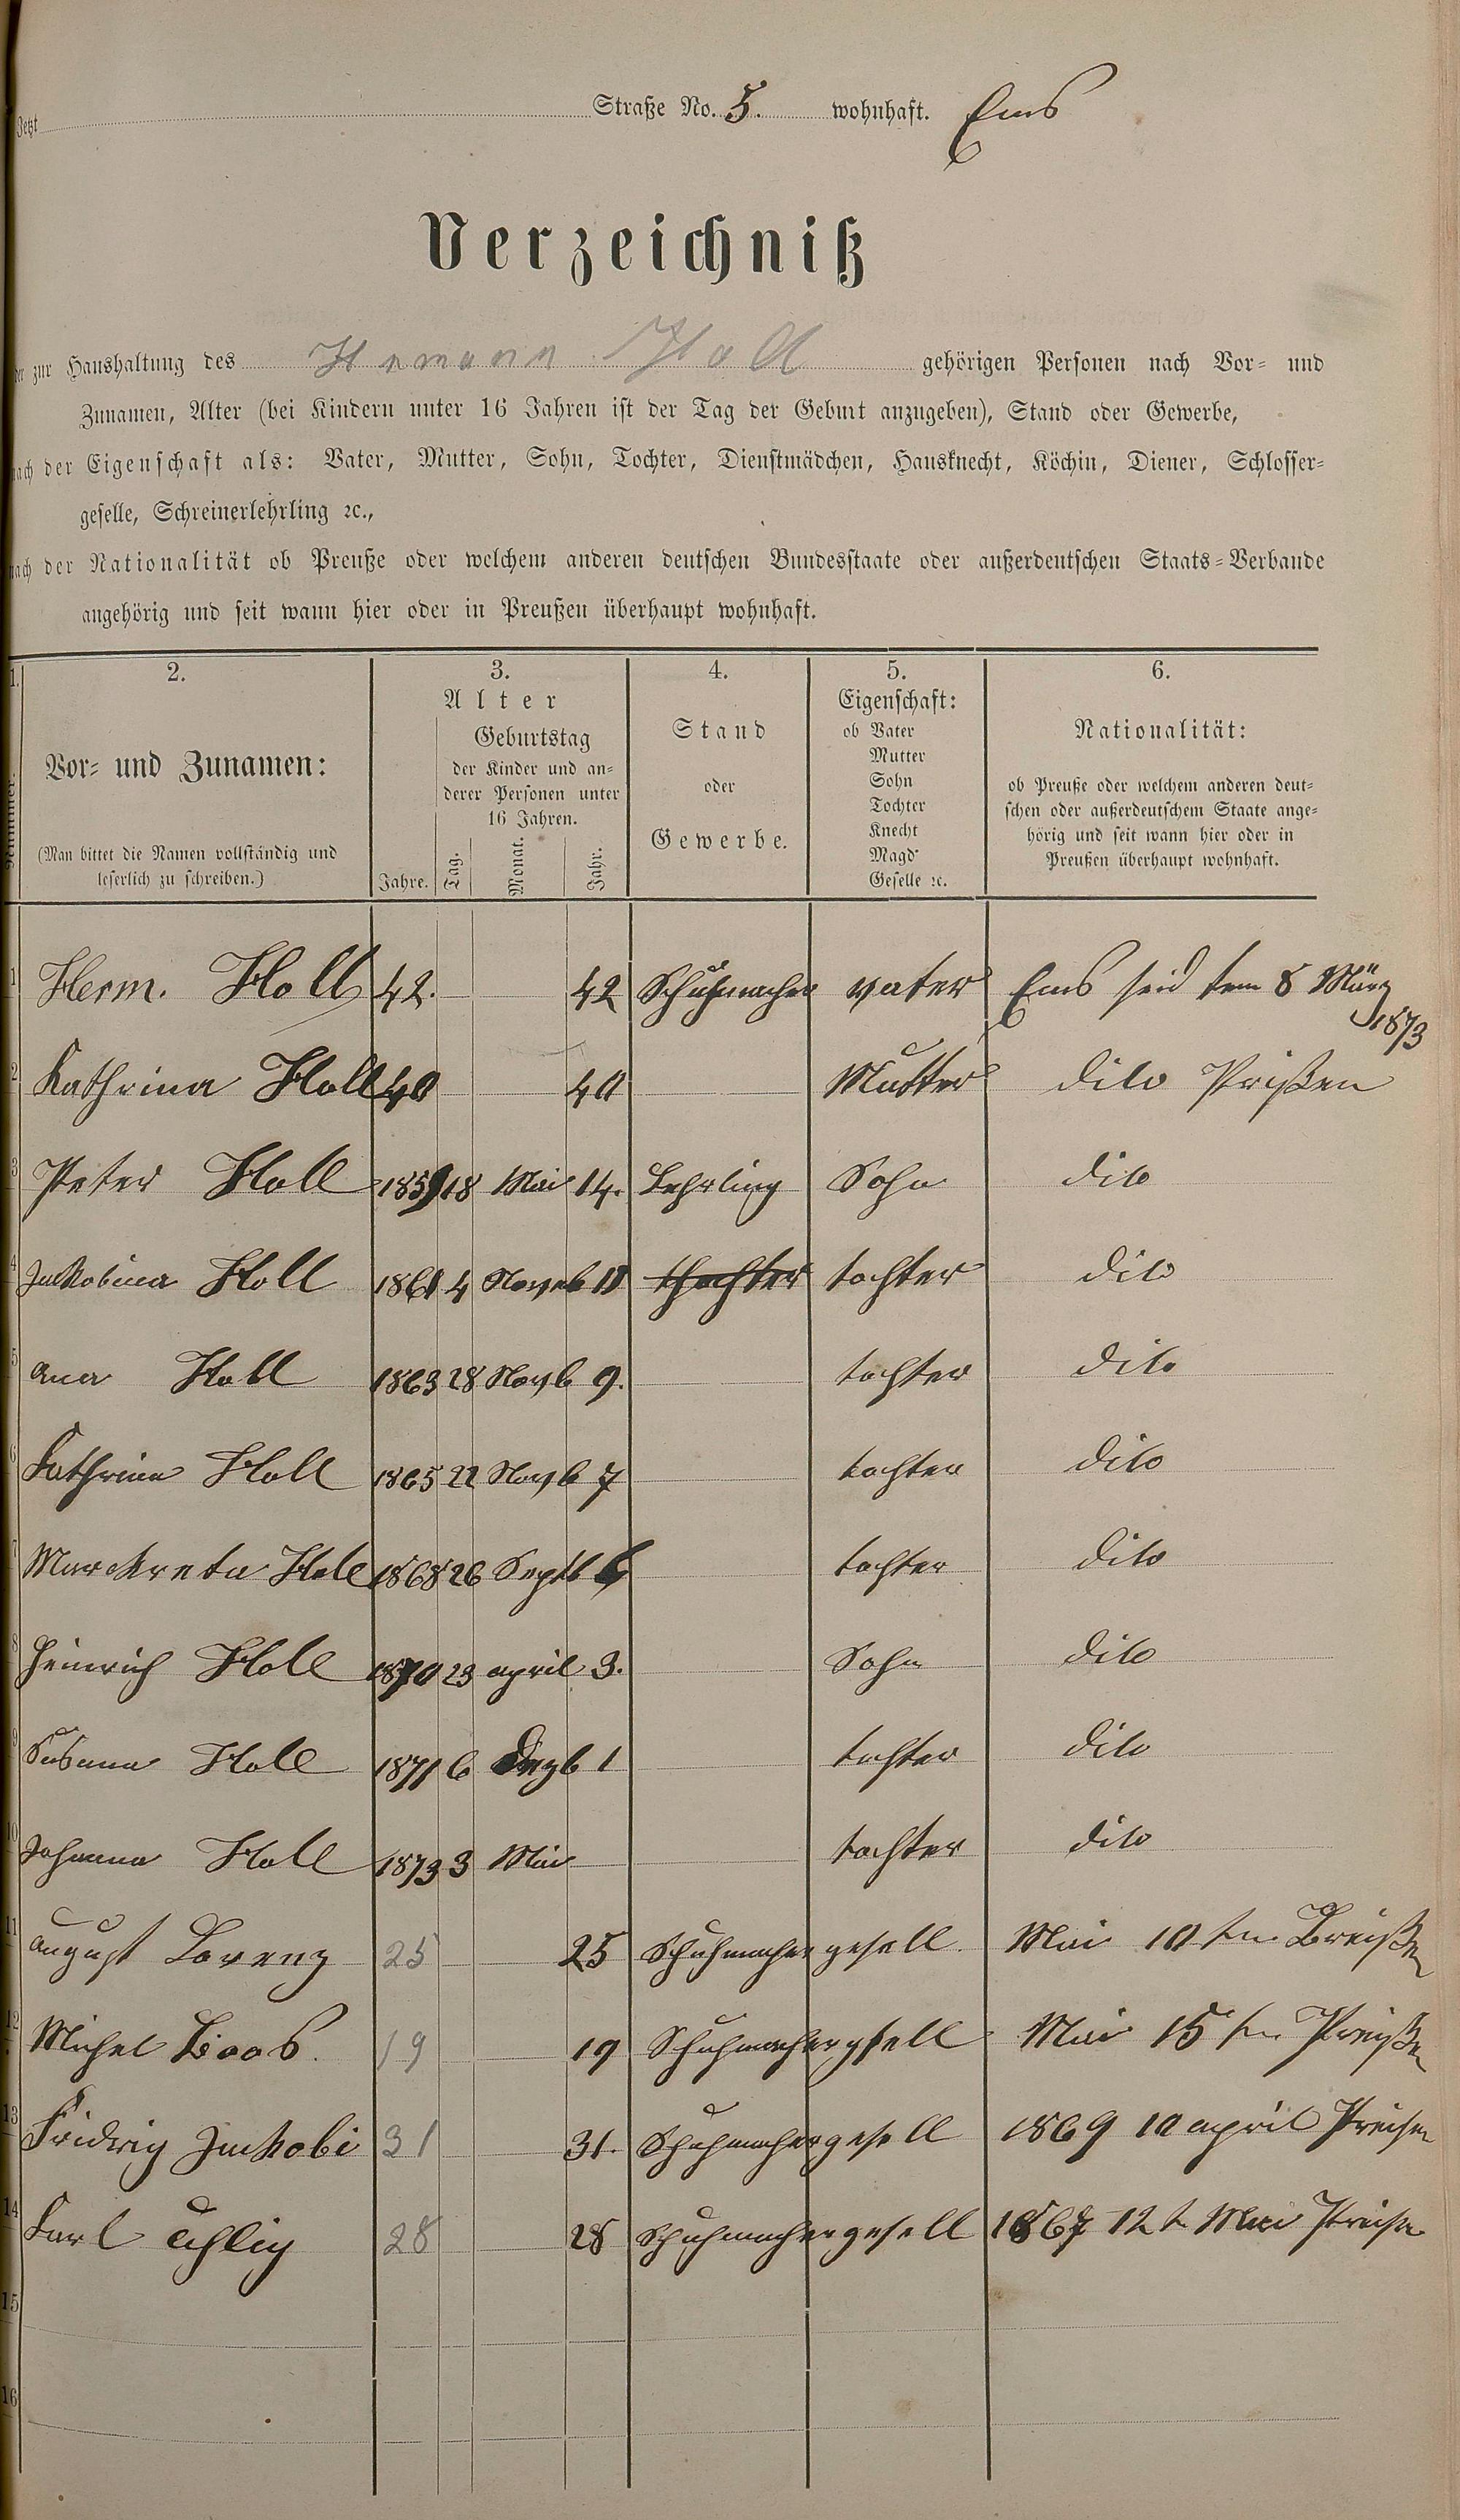 Jetzt Straße No. 5. wohnhaft. Ems
Verzeichniß
der zur Haushaltung des Hemann Holl gehörigen Personen nach Vor- und
Zunamen, Alter (bei Kindern unter 16 Jahren ist der Tag der Geburt anzugeben), Stand oder Gewerbe,
nach der Eigenschaft als: Vater, Mutter, Sohn, Tochter, Dienstmädchen, Hausknecht, Köchin, Diener, Schlosser-
geselle, Schreinerlehrling ꝛc.,
nach der Nationalität ob Preuße oder welchem anderen deutschen Bundesstaate oder außerdeutschen Staats-Verbande
angehörig und seit wann hier oder in Preußen überhaupt wohnhaft.
1. Nummer.
2.
Vor- und Zunamen:
(Man bittet die Namen vollständig und
leserlich zu schreiben.)
3.
Alter
Jahre.
Geburtstag
der Kinder und an-
derer Personen unter
16 Jahren.
Tag. Monat. Jahr.
4.
Stand
oder
Gewerbe.
5.
Eigenschaft:
ob Vater
Mutter
Sohn
Tochter
Knecht
Magd
Geselle ꝛc.
6.
Nationalität:
ob Preuße oder welchem anderen deut-
schen oder außerdeutschem Staate ange-
hörig und seit wann hier oder in
Preußen überhaupt wohnhaft.
1 Herm. Holl 42. 42 Schuhmacher vater Ems seid 8 März
1873
2 Kathrina Holl 40 40 Mutter dito Prißen
3 Peter Holl 1859 18 Mai 14. Lehrling Sohn dito
4 Jackobina Holl 1861 4 Noveb 11 thochter tochter dito
5 Ana Holl 1863 28 Novb 9. tochter dito
6 Kathrina Holl 1865 22 Novb 7 tochter dito
7 Marckreta Holl 1868 26 Septb tochter dito
8 Heinrich Holl 1870 23 april 3. Sohn dito
9 Susana Holl 1871 6 Dezb 1 tochter dito
10 Johanna Holl 1873 3 Mai tochter dito
11 august Lorenz 25 25 Schuhmacher gesell. Mai 10 ten Breißen
12 Michel Boos. 19 19 Schuhmachergsell Mai 15 ten Preißen
13 Fridrig Jackobi 31 31. Schuhmachergesell 1869 10 april Preisen
14 Karl Uhlig 28 28 Schuhmachergesell 1867 12 t Mai Preisen
15
16